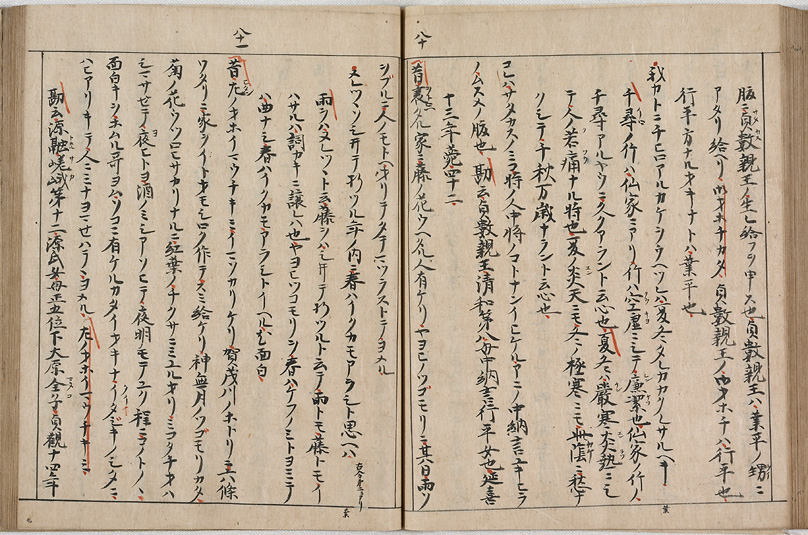 八十
腹ニ貞數親王ノ生レ給フヲ申ス也貞數親王ハ業平ノ甥ニ
アタリ給ヘリ御オホチカタ貞數親王ノ御オホチハ行平也
行平方ナルオキナトハ業平也
我カトニチヒロアルカケヲウヘツレハ夏冬タレカカクレサルヘキ
千尋ノ竹ハ仙家ニアリ竹ハ空虚ニシテ廉潔也仙家ノ竹ハ
千尋アルヘシアラント云心也夏冬ハ嚴寒炎熱ニシ
テ人ノ若痛ナル時也夏ノ炎天ニモ冬ノ極寒ニモ此陰ニ
ソシテ千秋万歳ナラント云心也
コレハサタカスノミコ時ノ人中将ノコトナンイヒケルアニノ中納言ユキヒラ
ノムスメノ腹也勘云貞數親王清和第八母中納言行平女也延喜
十三年薨四十二
昔衰タル家ニ藤ノ花ウヘタル人有ケリヤヨヒノツコモリニ其日雨ソ
八十一
シフルニ人ノモトヘオリテタテマツラストテヨメル
ヌレツヽソシヰテ折ツル年ノ内ニ春ハイクカモアラシト思ヘハ
雨ヲハヌレツヽト云藤ヲハシヰテ折ツルト云テ雨トモ藤トモイ
ハサルハ詞カキニ讓レル也ヤヨヒツコモリノ春ハケフノミトヨミテ
ハ曲ナシ春ハイクカモアラシトイヘル尤面白
昔左ノオホイマウチキミイマソカリケリ賀茂川ノホトリニ六條
ワタリニ家ヲイトオモシロク作テスミ給ケリ神無月ノツコモリカタ
菊ノ花ウツロヒサカリナルニ紅葉ノチクサニミユルオリミコタチオハ
シマサセテ夜ヒトヨ酒ノミシアソヒテ夜明モテユク程ニコノトノヽ
面白キヲホムル哥ヨムソコニ有ケルカタイオキナイタシキノシタニ
ハヒアリキテ人ニミナヨマセハテヽヨメル左オホイマウチキミ
勘云源融嵯峨第十二源氏母正五位下大原全子貞觀十四年